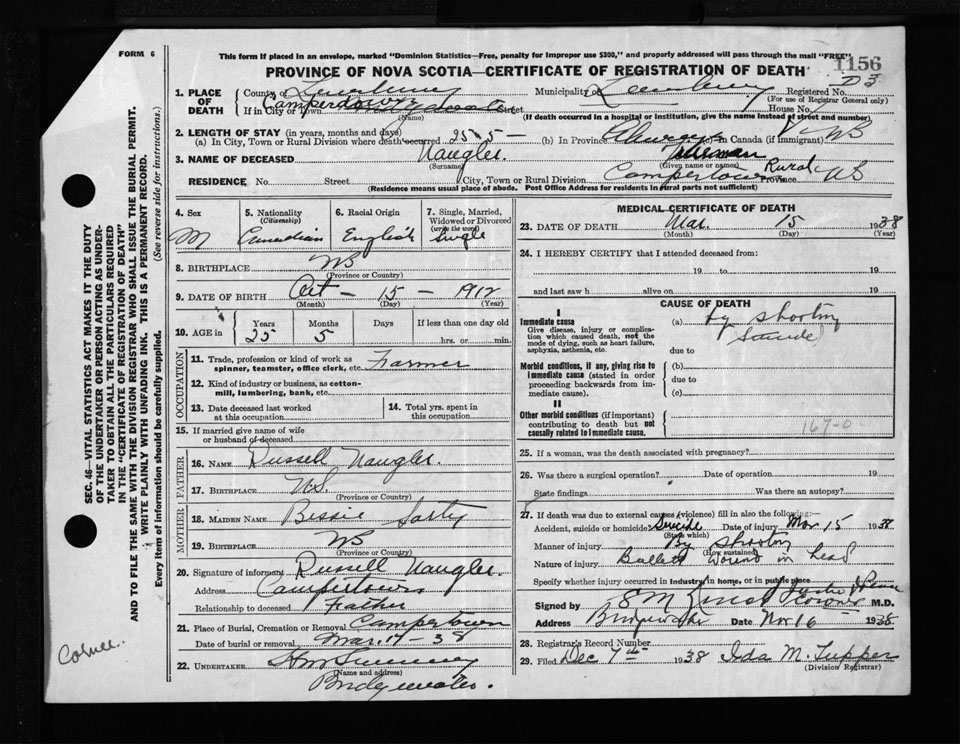 FORM 6
This form if placed in an envelope, marked "Dominion Statistics—Free, penalty for improper use $300," and properly addressed will pass through the mail "FREE".
1156
PROVINCE OF NOVA SCOTIA—CERTIFICATE OF REGISTRATION OF DEATH
D3
1. PLACE OF DEATH
County of Lunenburg Municipality of Lunenburg Registered No.
(For use of Registrar General only)
If in City or Town Camperdown Street House No.
(Name) (If death occurred in a hospital or institution, give name instead of street and number)
2. LENGTH OF STAY (in years, months and days)
(a) In City, Town or Rural Division where death occurred 25-5- (b) In Province Always (c) In Canada (if immigrant) NS
3. NAME OF DECEASED Naugler.
(Surname) (Given name or names)
RESIDENCE No. Street City, Town or Rural Division Campertown Rural Province NS
(Residence means usual place of abode. Post Office Address for residents in rural parts not sufficient)
4. Sex M
5. Nationality (Citizenship) Canadian
6. Racial Origin English
7. Single, Married, Widowed or Divorced (write the word) Single
8. BIRTHPLACE NS
(Province or Country)
9. DATE OF BIRTH Oct - 15 - 1912
(Month) (Day) (Year)
10. AGE in Years 25 Months 5 Days If less than one day old hrs. or min.
OCCUPATION
11. Trade, profession or kind of work as spinner, teamster, office clerk, etc. Farmer
12. Kind of industry or business, as cotton-mill, lumbering, bank, etc.
13. Date deceased last worked at this occupation
14. Total yrs. spent in this occupation
15. If married give name of wife or husband of deceased
FATHER
16. NAME Russell Naugler.
17. BIRTHPLACE N.S.
(Province or Country)
MOTHER
18. MAIDEN NAME Bessie Sarty
19. BIRTHPLACE NS
(Province or Country)
20. Signature of informant Russell Naugler
Address Campertown
Relationship to deceased Father
21. Place of Burial, Cremation or Removal Campertown
Date of burial or removal Mar. 17-38
22. UNDERTAKER
(Name and address)
Bridgewater.
MEDICAL CERTIFICATE OF DEATH
23. DATE OF DEATH Mar. 15 1938
(Month) (Day) (Year)
24. I HEREBY CERTIFY that I attended deceased from:
19 to 19
and last saw h alive on 19
CAUSE OF DEATH
I
Immediate cause
Give disease, injury or complication which caused death, not the mode of dying, such as heart failure, asphyxia, asthenia, etc.
(a) by shooting
Suicide
due to
Morbid conditions, if any, giving rise to immediate cause (stated in order proceeding backwards from immediate cause).
(b)
due to
(c)
II
Other morbid conditions (if important) contributing to death but not causally related to immediate cause.
167-0
25. If a woman, was the death associated with pregnancy?
26. Was there a surgical operation? Date of operation 19
State findings Was there an autopsy?
27. If death was due to external causes (violence) fill in also the following:—
Accident, suicide or homicide? Suicide Date of injury Mar 15 1938
(State which)
Manner of injury By shooting
(How sustained)
Nature of injury Bullet wound in head
Specify whether injury occurred in industry, in home, or in public place
Signed by M.D.
Address Bridgewater Date Nov 16 1938
28. Registrar's Record Number
29. Filed Dec 7th 1938 Ida M. Tupper
(Division Registrar)
SEC. 46—VITAL STATISTICS ACT MAKES IT THE DUTY OF THE UNDERTAKER OR PERSON ACTING AS UNDERTAKER TO OBTAIN ALL THE PARTICULARS REQUIRED IN THE "CERTIFICATE OF REGISTRATION OF DEATH"
AND TO FILE THE SAME WITH THE DIVISION REGISTRAR WHO SHALL ISSUE THE BURIAL PERMIT.
WRITE PLAINLY WITH UNFADING INK. THIS IS A PERMANENT RECORD.
Every item of information should be carefully supplied. (See reverse side for instructions.)